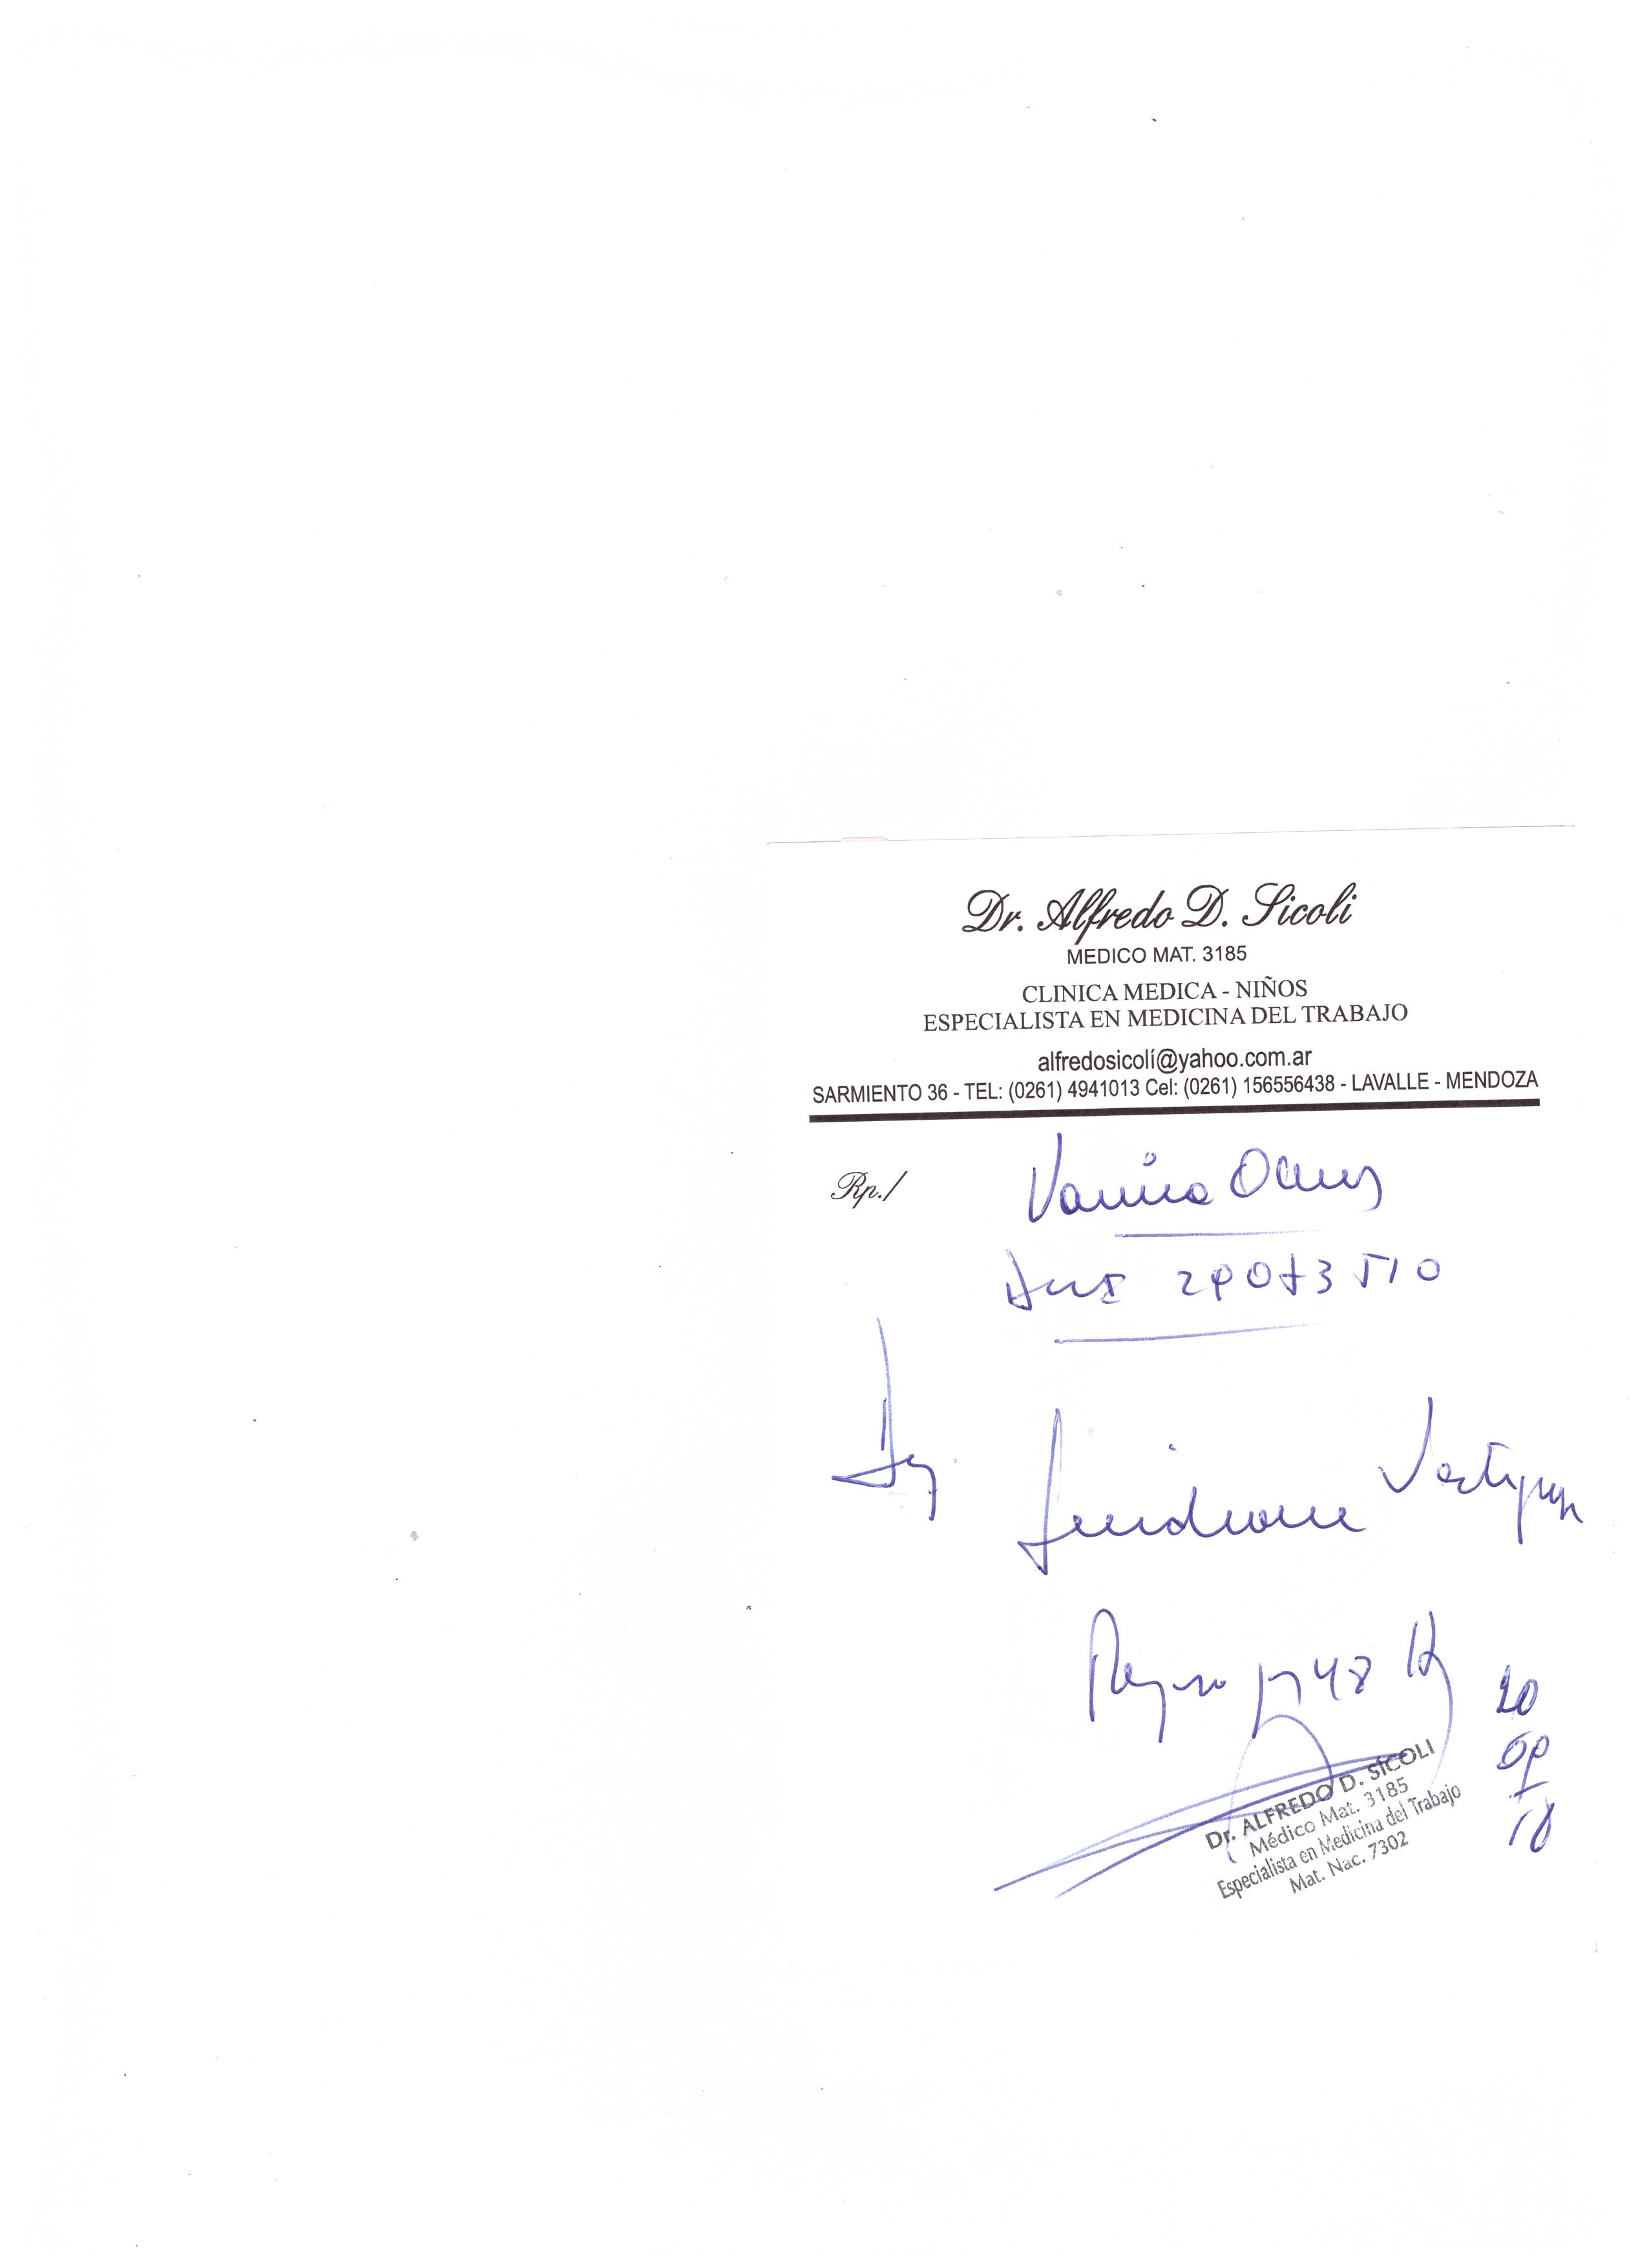 Dr. Alfredo D. Sicoli
MEDICO MAT. 3185
CLINICA MEDICA - NIÑOS
ESPECIALISTA EN MEDICINA DEL TRABAJO
alfredosicolí@yahoo.com.ar
SARMIENTO 36 - TEL: (0261) 4941013 Cel: (0261) 156556438 - LAVALLE - MENDOZA
Rp./
Vanina
29073510
Dg Sindrome
Reposo p/ 48 h
20
09
18
Dr. ALFREDO D. SICOLI
Médico Mat. 3185
Especialista en Medicina del Trabajo
Mat. Nac. 7302